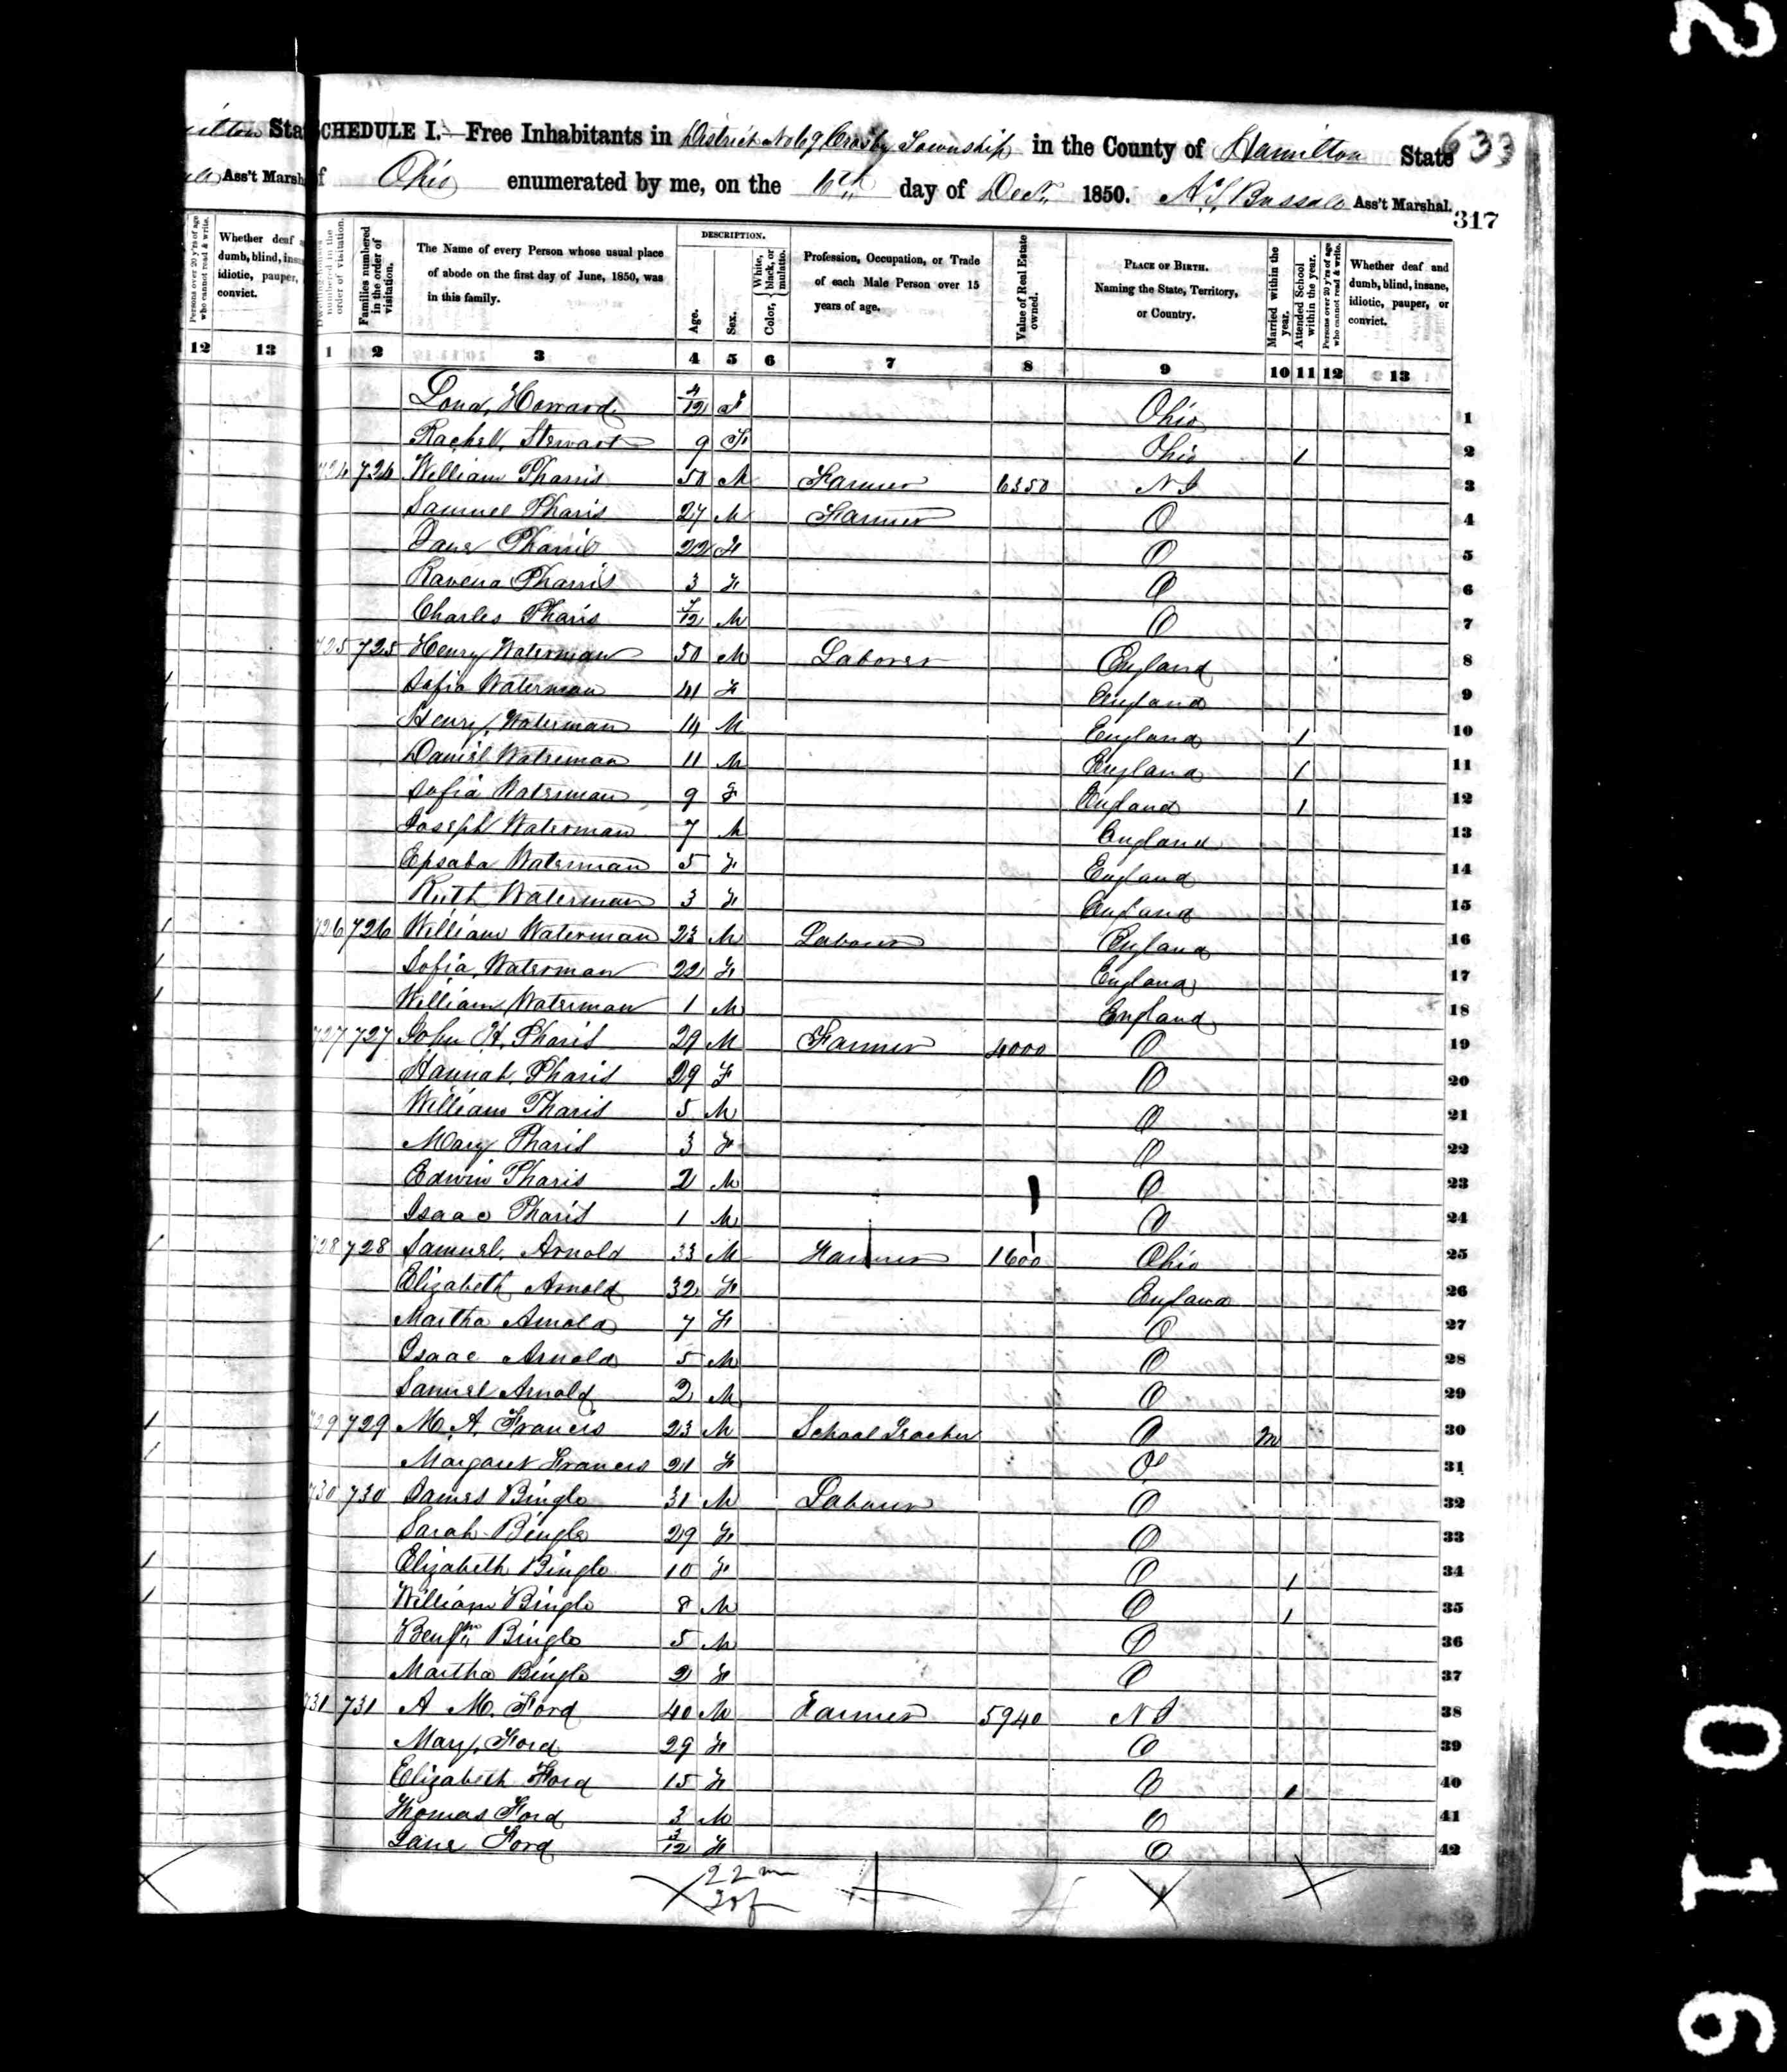 633
SCHEDULE I.—Free Inhabitants in District No 69 Crosby Township in the County of Hamilton State
of Ohio enumerated by me, on the 6th day of Decr 1850. Ass't Marshal.
317
Ass't Marsh
Persons over 20 y'rs of age who cannot read & write.
Whether deaf
dumb, blind,
idiotic, pauper,
convict.
12 13
Dwelling-houses numbered in the order of visitation.
Families numbered in the order of visitation.
The Name of every Person whose usual place of abode on the first day of June, 1850, was in this family.
DESCRIPTION.
Age.
Sex.
Color, { White, black, or mulatto.
Profession, Occupation, or Trade of each Male Person over 15 years of age.
Value of Real Estate owned.
PLACE OF BIRTH. Naming the State, Territory, or Country.
Married within the year.
Attended School within the year.
Persons over 20 y'rs of age who cannot read & write.
Whether deaf and dumb, blind, insane, idiotic, pauper, or convict.
1 2 3 4 5 6 7 8 9 10 11 12 13
Howard 4/12 F Ohio 1
Rachel Stewart 9 F Ohio 1 2
724 724 William Pharris 50 M Farmer 6350 N J 3
Samuel Pharis 27 M Farmer O 4
Jane Pharris 22 F O 5
Ravena Pharris 3 F O 6
Charles Pharis 7/12 M O 7
725 725 Henry Waterman 50 M Laborer England 8
Sofia Waterman 41 F England 9
Henry Waterman 14 M England 1 10
Daniel Waterman 11 M England 1 11
Sofia Waterman 9 F England 1 12
Joseph Waterman 7 M England 13
Epsaba Waterman 5 F England 14
Ruth Waterman 3 F England 15
726 726 William Waterman 23 M Laborer England 16
Sofia Waterman 22 F England 17
William Waterman 1 M England 18
727 727 John H. Pharis 29 M Farmer 4000 O 19
Hannah Pharis 29 F O 20
William Pharis 5 M O 21
Mary Pharis 3 F O 22
Edwin Pharis 2 M O 23
Isaac Pharis 1 M O 24
728 728 Samuel Arnold 33 M Farmer 1600 Ohio 25
Elizabeth Arnold 32 F England 26
Martha Arnold 7 F O 27
Isaac Arnold 5 M O 28
Samuel Arnold 2 M O 29
729 729 M. A. Francis 23 M School Teacher O m 30
Margaret Francis 21 F O 31
730 730 James Bingle 31 M Laborer O 32
Sarah Bingle 29 F O 33
Elizabeth Bingle 10 F O 1 34
William Bingle 8 M O 1 35
Benjmn Bingle 5 M O 36
Martha Bingle 2 F O 37
731 731 A M. Ford 40 M Farmer 5940 N J 38
Mary Ford 29 F O 39
Elizabeth Ford 15 F O 1 40
Thomas Ford 3 M O 41
Jane Ford F O 42
22 m
20 f
2
016